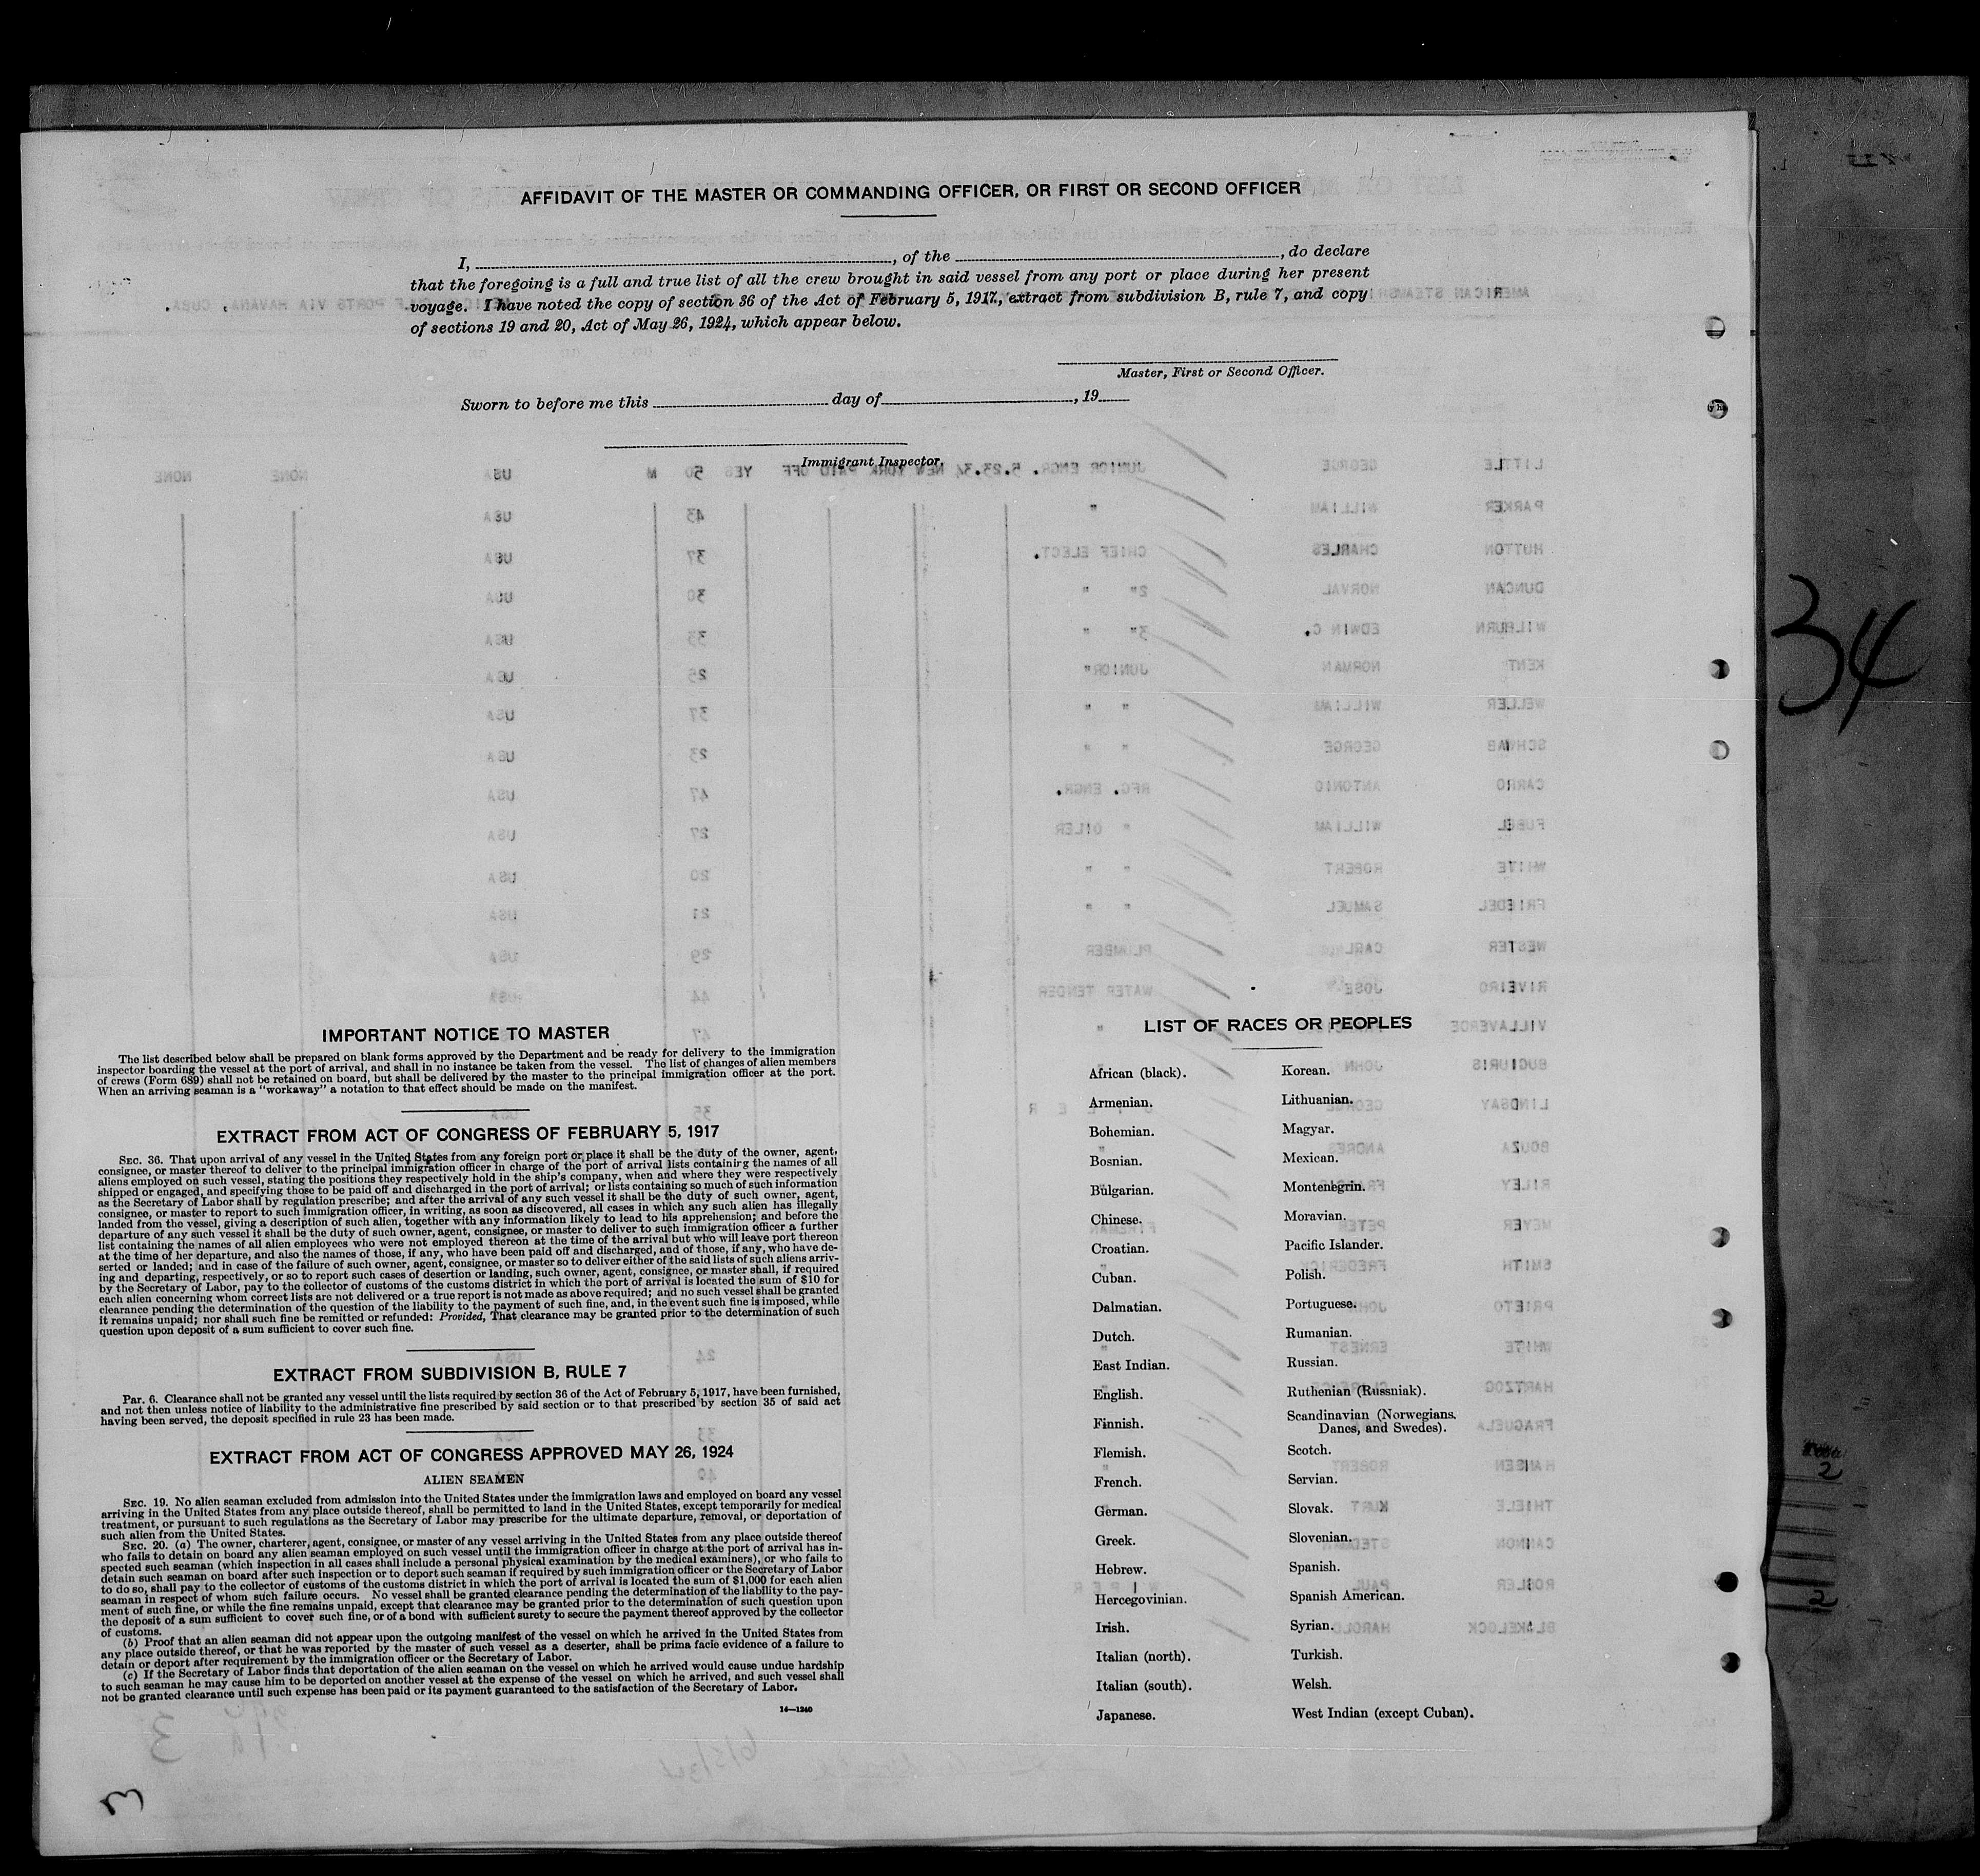 AFFIDAVIT OF THE MASTER OR COMMANDING OFFICER, OR FIRST OR SECOND OFFICER
I, , of the , do declare
that the foregoing is a full and true list of all the crew brought in said vessel from any port or place during her present
voyage. I have noted the copy of section 36 of the Act of February 5, 1917, extract from subdivision B, rule 7, and copy
of sections 19 and 20, Act of May 26, 1924, which appear below.
Master, First or Second Officer.
Sworn to before me this day of , 19
Immigrant Inspector.
34
IMPORTANT NOTICE TO MASTER
The list described below shall be prepared on blank forms approved by the Department and be ready for delivery to the immigration
inspector boarding the vessel at the port of arrival, and shall in no instance be taken from the vessel. The list of changes of alien members
of crews (Form 689) shall not be retained on board, but shall be delivered by the master to the principal immigration officer at the port.
When an arriving seaman is a "workaway" a notation to that effect should be made on the manifest.
EXTRACT FROM ACT OF CONGRESS OF FEBRUARY 5, 1917
SEC. 36. That upon arrival of any vessel in the United States from any foreign port or place it shall be the duty of the owner, agent,
consignee, or master thereof to deliver to the principal immigration officer in charge of the port of arrival lists containing the names of all
aliens employed on such vessel, stating the positions they respectively hold in the ship's company, when and where they were respectively
shipped or engaged, and specifying those to be paid off and discharged in the port of arrival; or lists containing so much of such information
as the Secretary of Labor shall by regulation prescribe; and after the arrival of any such vessel it shall be the duty of such owner, agent,
consignee, or master to report to such immigration officer, in writing, as soon as discovered, all cases in which any such alien has illegally
landed from the vessel, giving a description of such alien, together with any information likely to lead to his apprehension; and before the
departure of any such vessel it shall be the duty of such owner, agent, consignee, or master to deliver to such immigration officer a further
list containing the names of all alien employees who were not employed thereon at the time of the arrival but who will leave port thereon
at the time of her departure, and also the names of those, if any, who have been paid off and discharged, and of those, if any, who have de-
serted or landed; and in case of the failure of such owner, agent, consignee, or master so to deliver either of the said lists of such aliens arriv-
ing and departing, respectively, or so to report such cases of desertion or landing, such owner, agent, consignee, or master shall, if required
by the Secretary of Labor, pay to the collector of customs of the customs district in which the port of arrival is located the sum of $10 for
each alien concerning whom correct lists are not delivered or a true report is not made as above required; and no such vessel shall be granted
clearance pending the determination of the question of the liability to the payment of such fine, and, in the event such fine is imposed, while
it remains unpaid; nor shall such fine be remitted or refunded: Provided, That clearance may be granted prior to the determination of such
question upon deposit of a sum sufficient to cover such fine.
EXTRACT FROM SUBDIVISION B, RULE 7
Par. 6. Clearance shall not be granted any vessel until the lists required by section 36 of the Act of February 5, 1917, have been furnished,
and not then unless notice of liability to the administrative fine prescribed by said section or to that prescribed by section 35 of said act
having been served, the deposit specified in rule 23 has been made.
EXTRACT FROM ACT OF CONGRESS APPROVED MAY 26, 1924
ALIEN SEAMEN
SEC. 19. No alien seaman excluded from admission into the United States under the immigration laws and employed on board any vessel
arriving in the United States from any place outside thereof, shall be permitted to land in the United States, except temporarily for medical
treatment, or pursuant to such regulations as the Secretary of Labor may prescribe for the ultimate departure, removal, or deportation of
such alien from the United States.
SEC. 20. (a) The owner, charterer, agent, consignee, or master of any vessel arriving in the United States from any place outside thereof
who fails to detain on board any alien seaman employed on such vessel until the immigration officer in charge at the port of arrival has in-
spected such seaman (which inspection in all cases shall include a personal physical examination by the medical examiners), or who fails to
detain such seaman on board after such inspection or to deport such seaman if required by such immigration officer or the Secretary of Labor
to do so, shall pay to the collector of customs of the customs district in which the port of arrival is located the sum of $1,000 for each alien
seaman in respect of whom such failure occurs. No vessel shall be granted clearance pending the determination of the liability to the pay-
ment of such fine, or while the fine remains unpaid, except that clearance may be granted prior to the determination of such question upon
the deposit of a sum sufficient to cover such fine, or of a bond with sufficient surety to secure the payment thereof approved by the collector
of customs.
(b) Proof that an alien seaman did not appear upon the outgoing manifest of the vessel on which he arrived in the United States from
any place outside thereof, or that he was reported by the master of such vessel as a deserter, shall be prima facie evidence of a failure to
detain or deport after requirement by the immigration officer or the Secretary of Labor.
(c) If the Secretary of Labor finds that deportation of the alien seaman on the vessel on which he arrived would cause undue hardship
to such seaman he may cause him to be deported on another vessel at the expense of the vessel on which he arrived, and such vessel shall
not be granted clearance until such expense has been paid or its payment guaranteed to the satisfaction of the Secretary of Labor.
14—1240
LIST OF RACES OR PEOPLES
African (black).
Armenian.
Bohemian.
Bosnian.
Bulgarian.
Chinese.
Croatian.
Cuban.
Dalmatian.
Dutch.
East Indian.
English.
Finnish.
Flemish.
French.
German.
Greek.
Hebrew.
Hercegovinian.
Irish.
Italian (north).
Italian (south).
Japanese.
Korean.
Lithuanian.
Magyar.
Mexican.
Montenegrin.
Moravian.
Pacific Islander.
Polish.
Portuguese.
Rumanian.
Russian.
Ruthenian (Russniak).
Scandinavian (Norwegians,
Danes, and Swedes).
Scotch.
Servian.
Slovak.
Slovenian.
Spanish.
Spanish American.
Syrian.
Turkish.
Welsh.
West Indian (except Cuban).
2
2
3